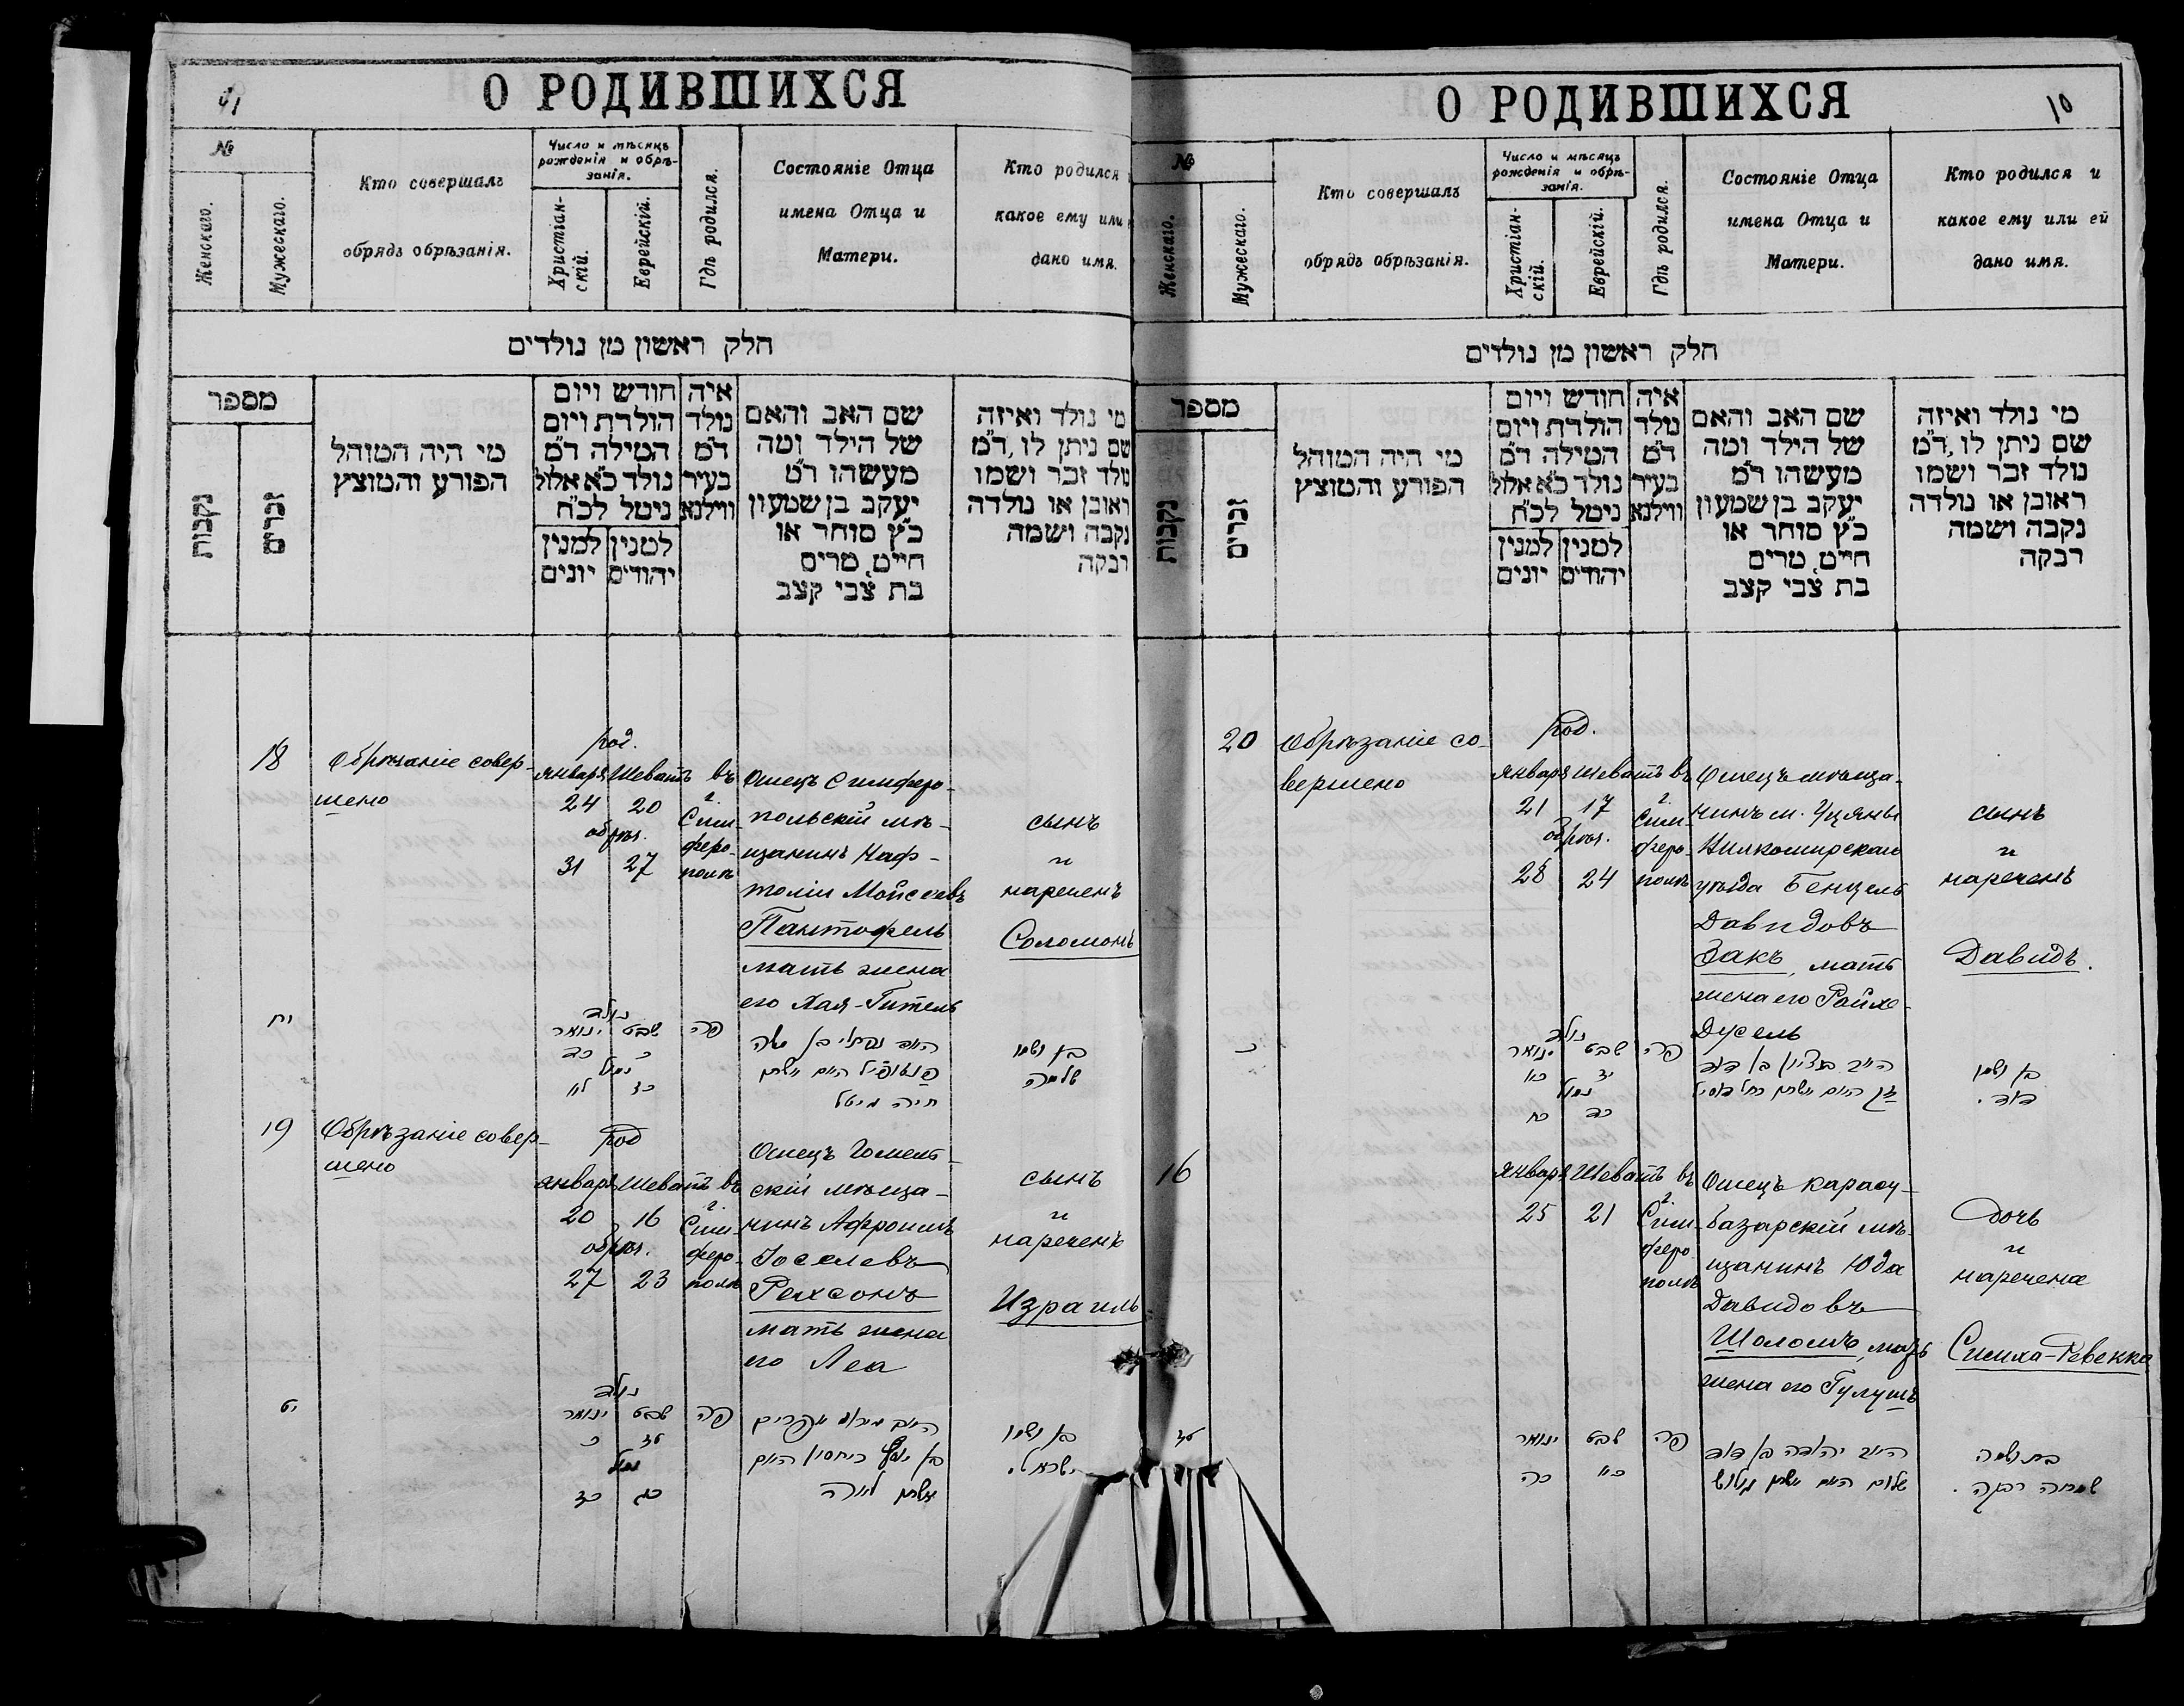 О РОДИВШИХСЯ
№
Женскаго.
Мужескаго.
Кто совершалъ
обрядъ обрѣзанія.
Число и мѣсяцъ
рожденія и обрѣ-
занія.
Христіан-
скій.
Еврейскій.
Гдѣ родился.
Состояніе Отца
имена Отца и
Матери.
Кто родился
какое ему или
дано имя.
חלק ראשון מן נולדים
מספר
נקבות
זכרים
מי היה המוהל
הפורע והמוצץ
חודש ויום
הולדת ויום
המילה ד"מ
נולד כ"א אלול
נימל לכ"ח
למנין יונים
למנין יהודים
איה
נולד
ד"מ
בעיר
ווילנא
שם האב והאם
של הילד ומה
מעשהו ד"מ
יעקב בן שמעון
כ"ץ סוחר או
חייט, מרים
בת צבי קצב
מי נולד ואיזה
שם ניתן לו, ד"מ
נולד זכר ושמו
ראובן או נולדה
נקבה ושמה
רבקה
18
Обрѣзаніе совер-
шено
род.
января Шеватъ
24 20
обрѣз.
31 27
въ
г.
Сим-
феро-
полѣ
Отецъ Симферо-
польскій мѣ-
щанинъ Наф-
толи Мойсеевъ
Пантофель
мать жена
его Хая-Гитель
сынъ
и
нареченъ
Соломонъ
יח
נולד
ינואר שבט
כד כ
נמול
לא כז
פה
האב נפתלי בן משה
פנטופיל האם אשתו
חיה גיטל
בן ושמו
שלמה
19
Обрѣзаніе совер-
шено
род
января Шеватъ
20 16
обрѣз.
27 23
въ
г.
Сим-
феро-
полѣ
Отецъ Гомель-
скій мѣща-
нинъ Афроимъ
Іоселевъ
Рейхсонъ
мать жена
его Леа
сынъ
и
нареченъ
Израиль
יט
נולד
ינואר שבט
כ טז
נמול
כז כג
פה
האב אפרים
בן יוסף רייחסון האם
אשתו לאה
בן ושמו
ישראל.
О РОДИВШИХСЯ
10
№
Женскаго.
Мужескаго.
Кто совершалъ
обрядъ обрѣзанія.
Число и мѣсяцъ
рожденія и обрѣ-
занія.
Христіан-
скій.
Еврейскій.
Гдѣ родился.
Состояніе Отца
имена Отца и
Матери.
Кто родился и
какое ему или ей
дано имя.
חלק ראשון מן נולדים
מספר
נקבות
זכרים
מי היה המוהל
הפורע והמוצץ
חודש ויום
הולדת ויום
המילה ד"מ
נולד כ"א אלול
נימל לכ"ח
למנין יונים
למנין יהודים
איה
נולד
ד"מ
בעיר
ווילנא
שם האב והאם
של הילד ומה
מעשהו ד"מ
יעקב בן שמעון
כ"ץ סוחר או
חייט, מרים
בת צבי קצב
מי נולד ואיזה
שם ניתן לו, ד"מ
נולד זכר ושמו
ראובן או נולדה
נקבה ושמה
רבקה
20
Обрѣзаніе со-
вершено
род.
января Шеватъ
21 17
обрѣз.
28 24
въ
г.
Сим-
феро-
полѣ
Отецъ мѣща-
нинъ м. Уцяны
Вилкомирскаго
уѣзда Бенцель
Давидовъ
Закъ, мать
жена его Райхе-
Дусель
сынъ
и
нареченъ
Давидъ.
כ
נולד
ינואר שבט
כא יז
נמול
כח כד
פה
האב בנציון בן דוד
זק האם אשתו
בן ושמו
דוד.
16
января Шеватъ
25 21
въ
г.
Сим-
феро-
полѣ
Отецъ карасу-
базарскій мѣ-
щанинъ Юда
Давидовъ
Шоломъ, мать
жена его Гулушъ
дочь
и
наречена
Симха-Ревекка
טז
ינואר שבט
כה כא
פה
האב יהודה בן דוד
שלום האם אשתו גולוש
בת ושמה
שמחה רבקה.